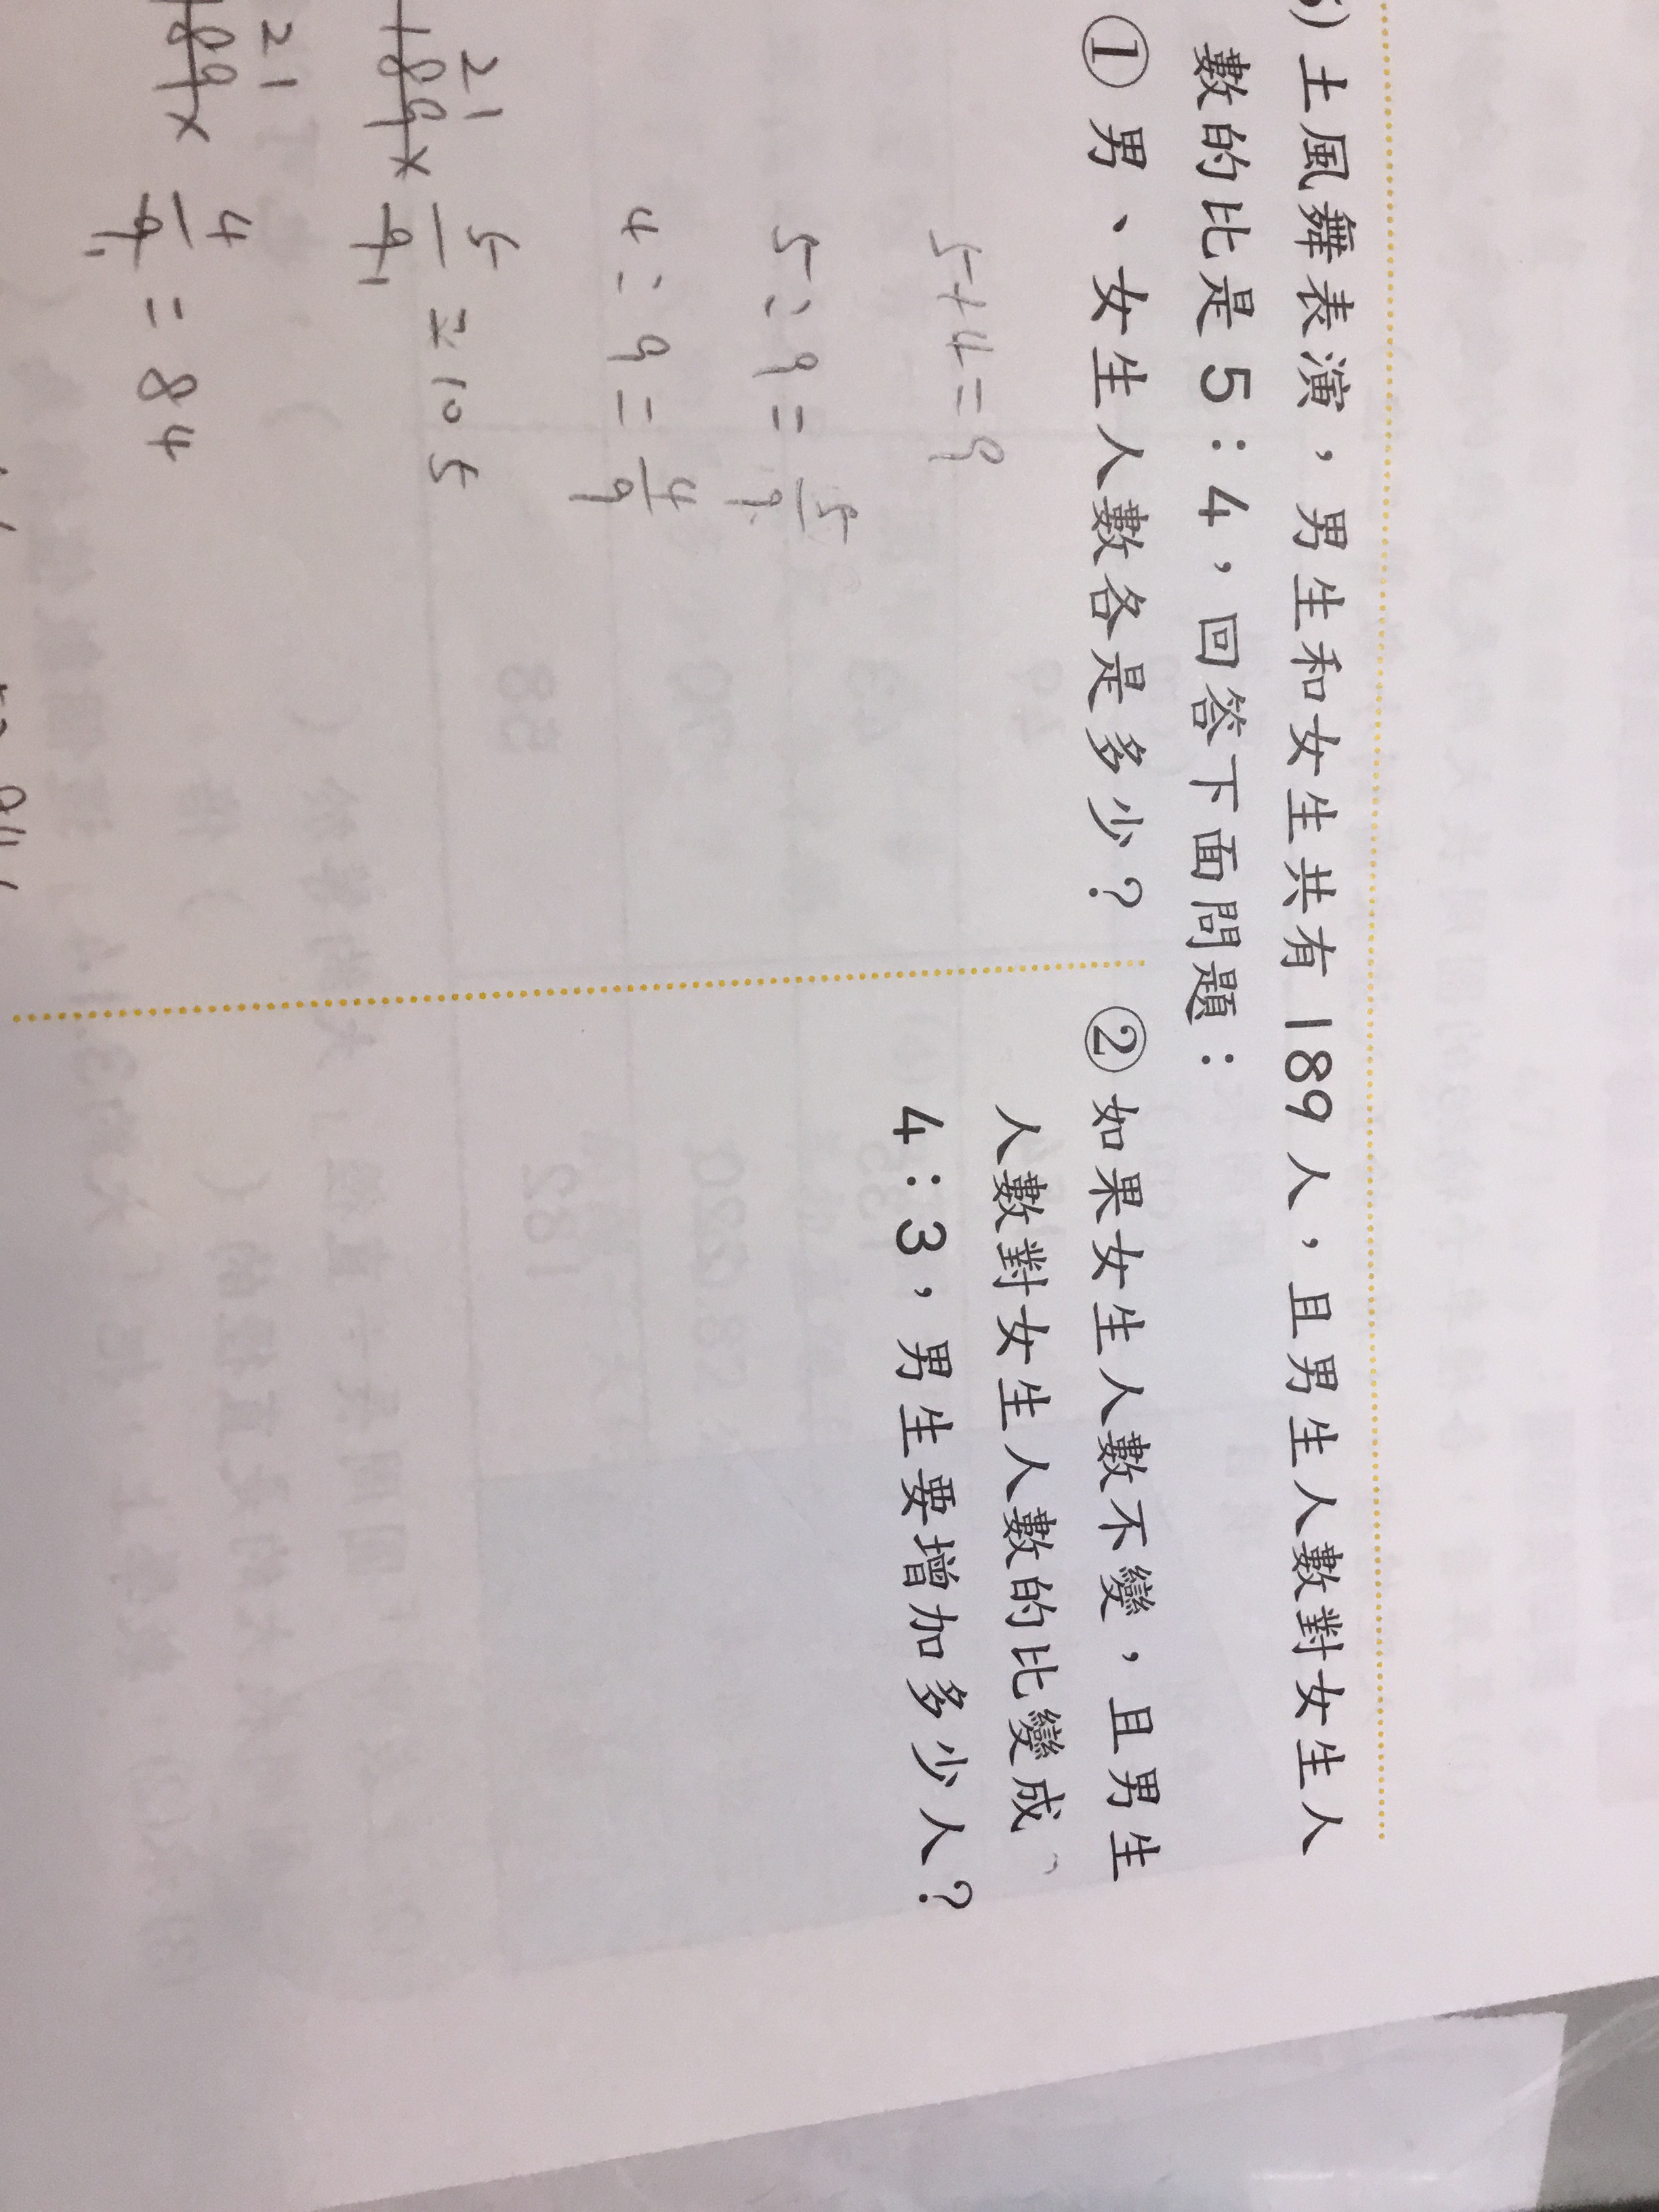 )土風舞表演，男生和女生共有189人，且男生人數對女生人
數的比是5：4，回答下面問題：
①男、女生人數各是多少？
5+4=9
5:9=5/9
4:9=4/9
21
189×5/9 1=105
21
189×4/9 1=84
②如果女生人數不變，且男生
人數對女生人數的比變成
4：3，男生要增加多少人？